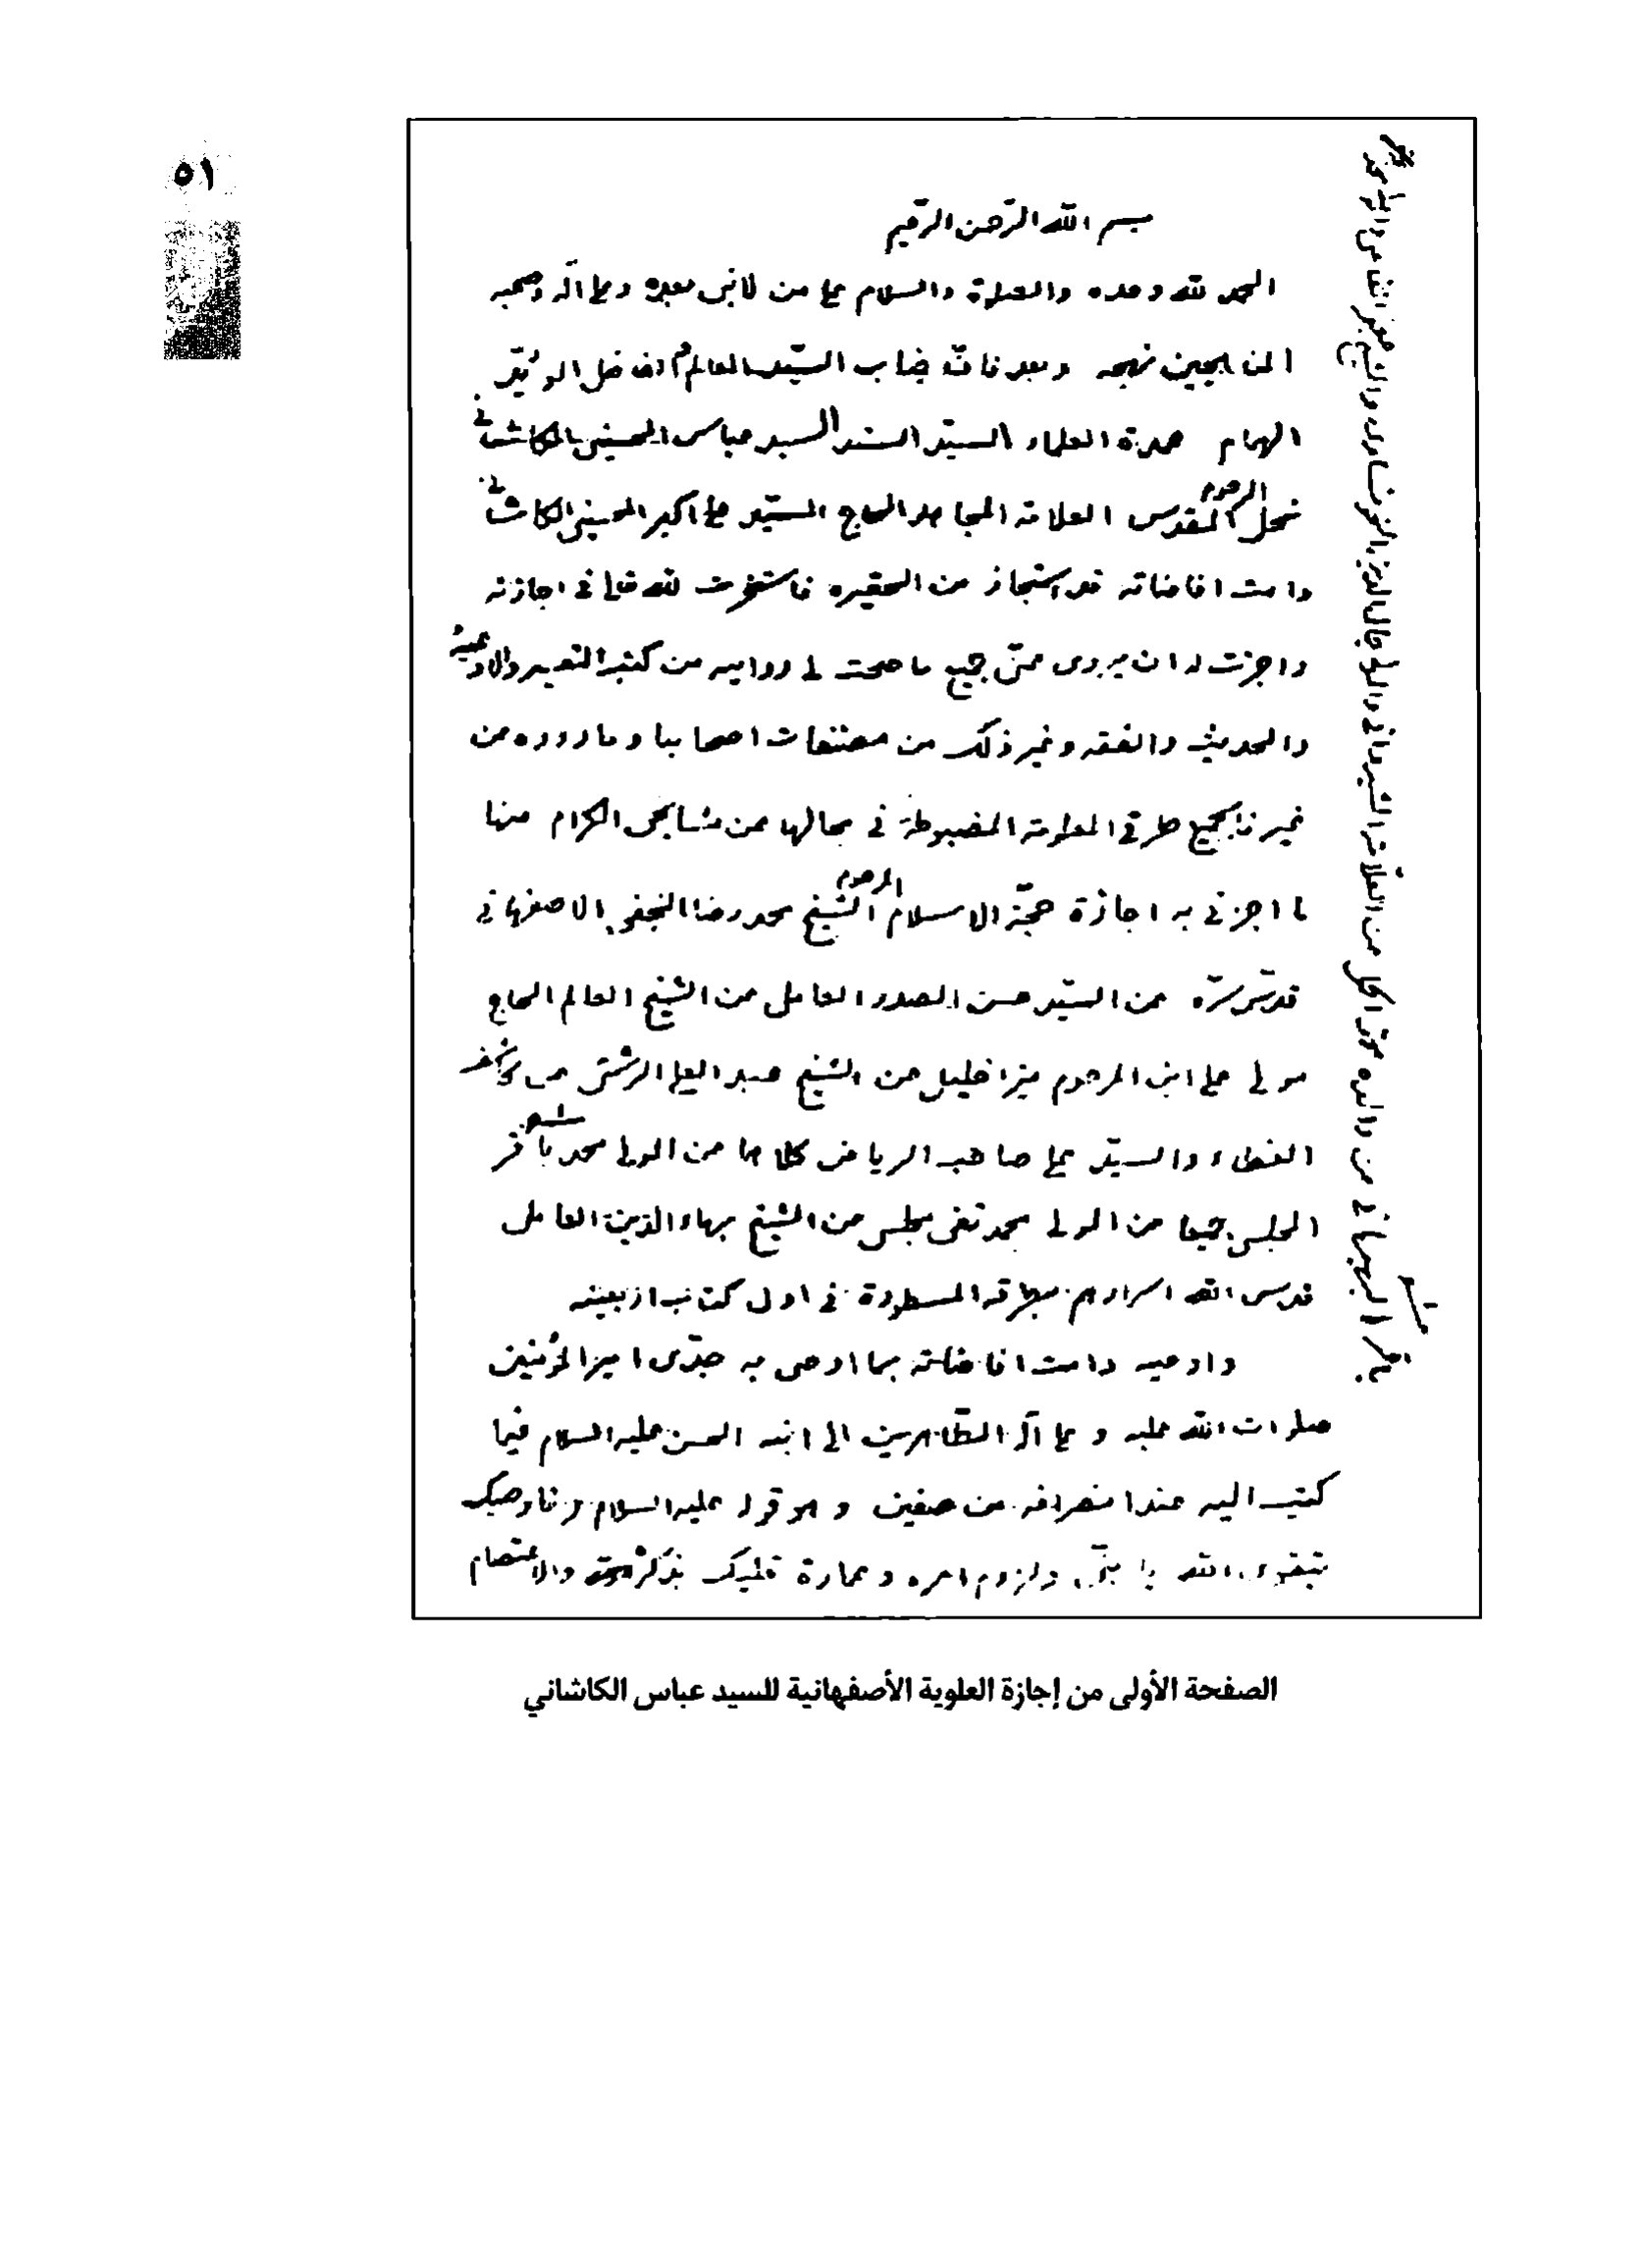 ٥١
بسم الله الرّحمن الرّحيم
الحمد لله وحده والصلوة والسلام على من لا نبى بعده وعلى آله وصحبه
الناهجين نهجه وبعد فانّ جناب السيّد العالم الفاضل الوثيق
الهمام عمدة العلماء السيّد السند السيد عباس الحسينى الكاشانى
نجل المرحوم المقدس العلامة المجاهد الحاج السيّد على اكبر الحسينى الكاشانى
دامت افاضاته قد استجاز من الحقيره فاستخرت لله تعالى فى اجازته
واجزت له ان يروى عنّى جميع ما صحت لى روايته من كتب التفسير والادعية
والحديث والفقه وغير ذلك من مصنفات اصحابنا وما رووه من
غيرنا بجميع طرقى المعلومة المضبوطة فى محالها عن مشايخى الكرام منها
ما اجزنى به اجازة حجّة الاسلام المرحوم الشيخ محمد رضا النجفى الاصفهانى
قدّس سرّه عن السيّد حسن الصدر العاملى عن الشيخ العالم الحاج
مولى على ابن المرحوم ميرزا خليل عن الشيخ عبد العلى الرشتى عن كاشف
الغطاء والسيّد على صاحب الرياض كلاهما عن المولى محمد باقر
المجلسى جميعا عن المولى محمد تقى مجلسى عن الشيخ بهاء الدين العاملى
قدس الله اسرارهم بطرقه المسطورة فى اول كتاب اربعينه
واوصيه دامت افاضاته بما اوصى به جدّى امير المؤمنين
صلوات الله عليه وعلى آله الطّاهرين الى ابنه الحسن عليه السلام فيما
كتب اليه عند انصرافه من صفين وهو قوله عليه السلام فاوصيك
بتقوى الله يا بنىّ ولزوم امره وعمارة قلبك بذكره والاعتصام
من العلامة الشيروانى والمولى جمال الدين الخونسارى والشيخ جعفر القاضى والمولى محمد
باقر البهبهانى عن والده محمد اكمل
الصفحة الأولى من إجازة العلوية الأصفهانية للسيد عباس الكاشاني